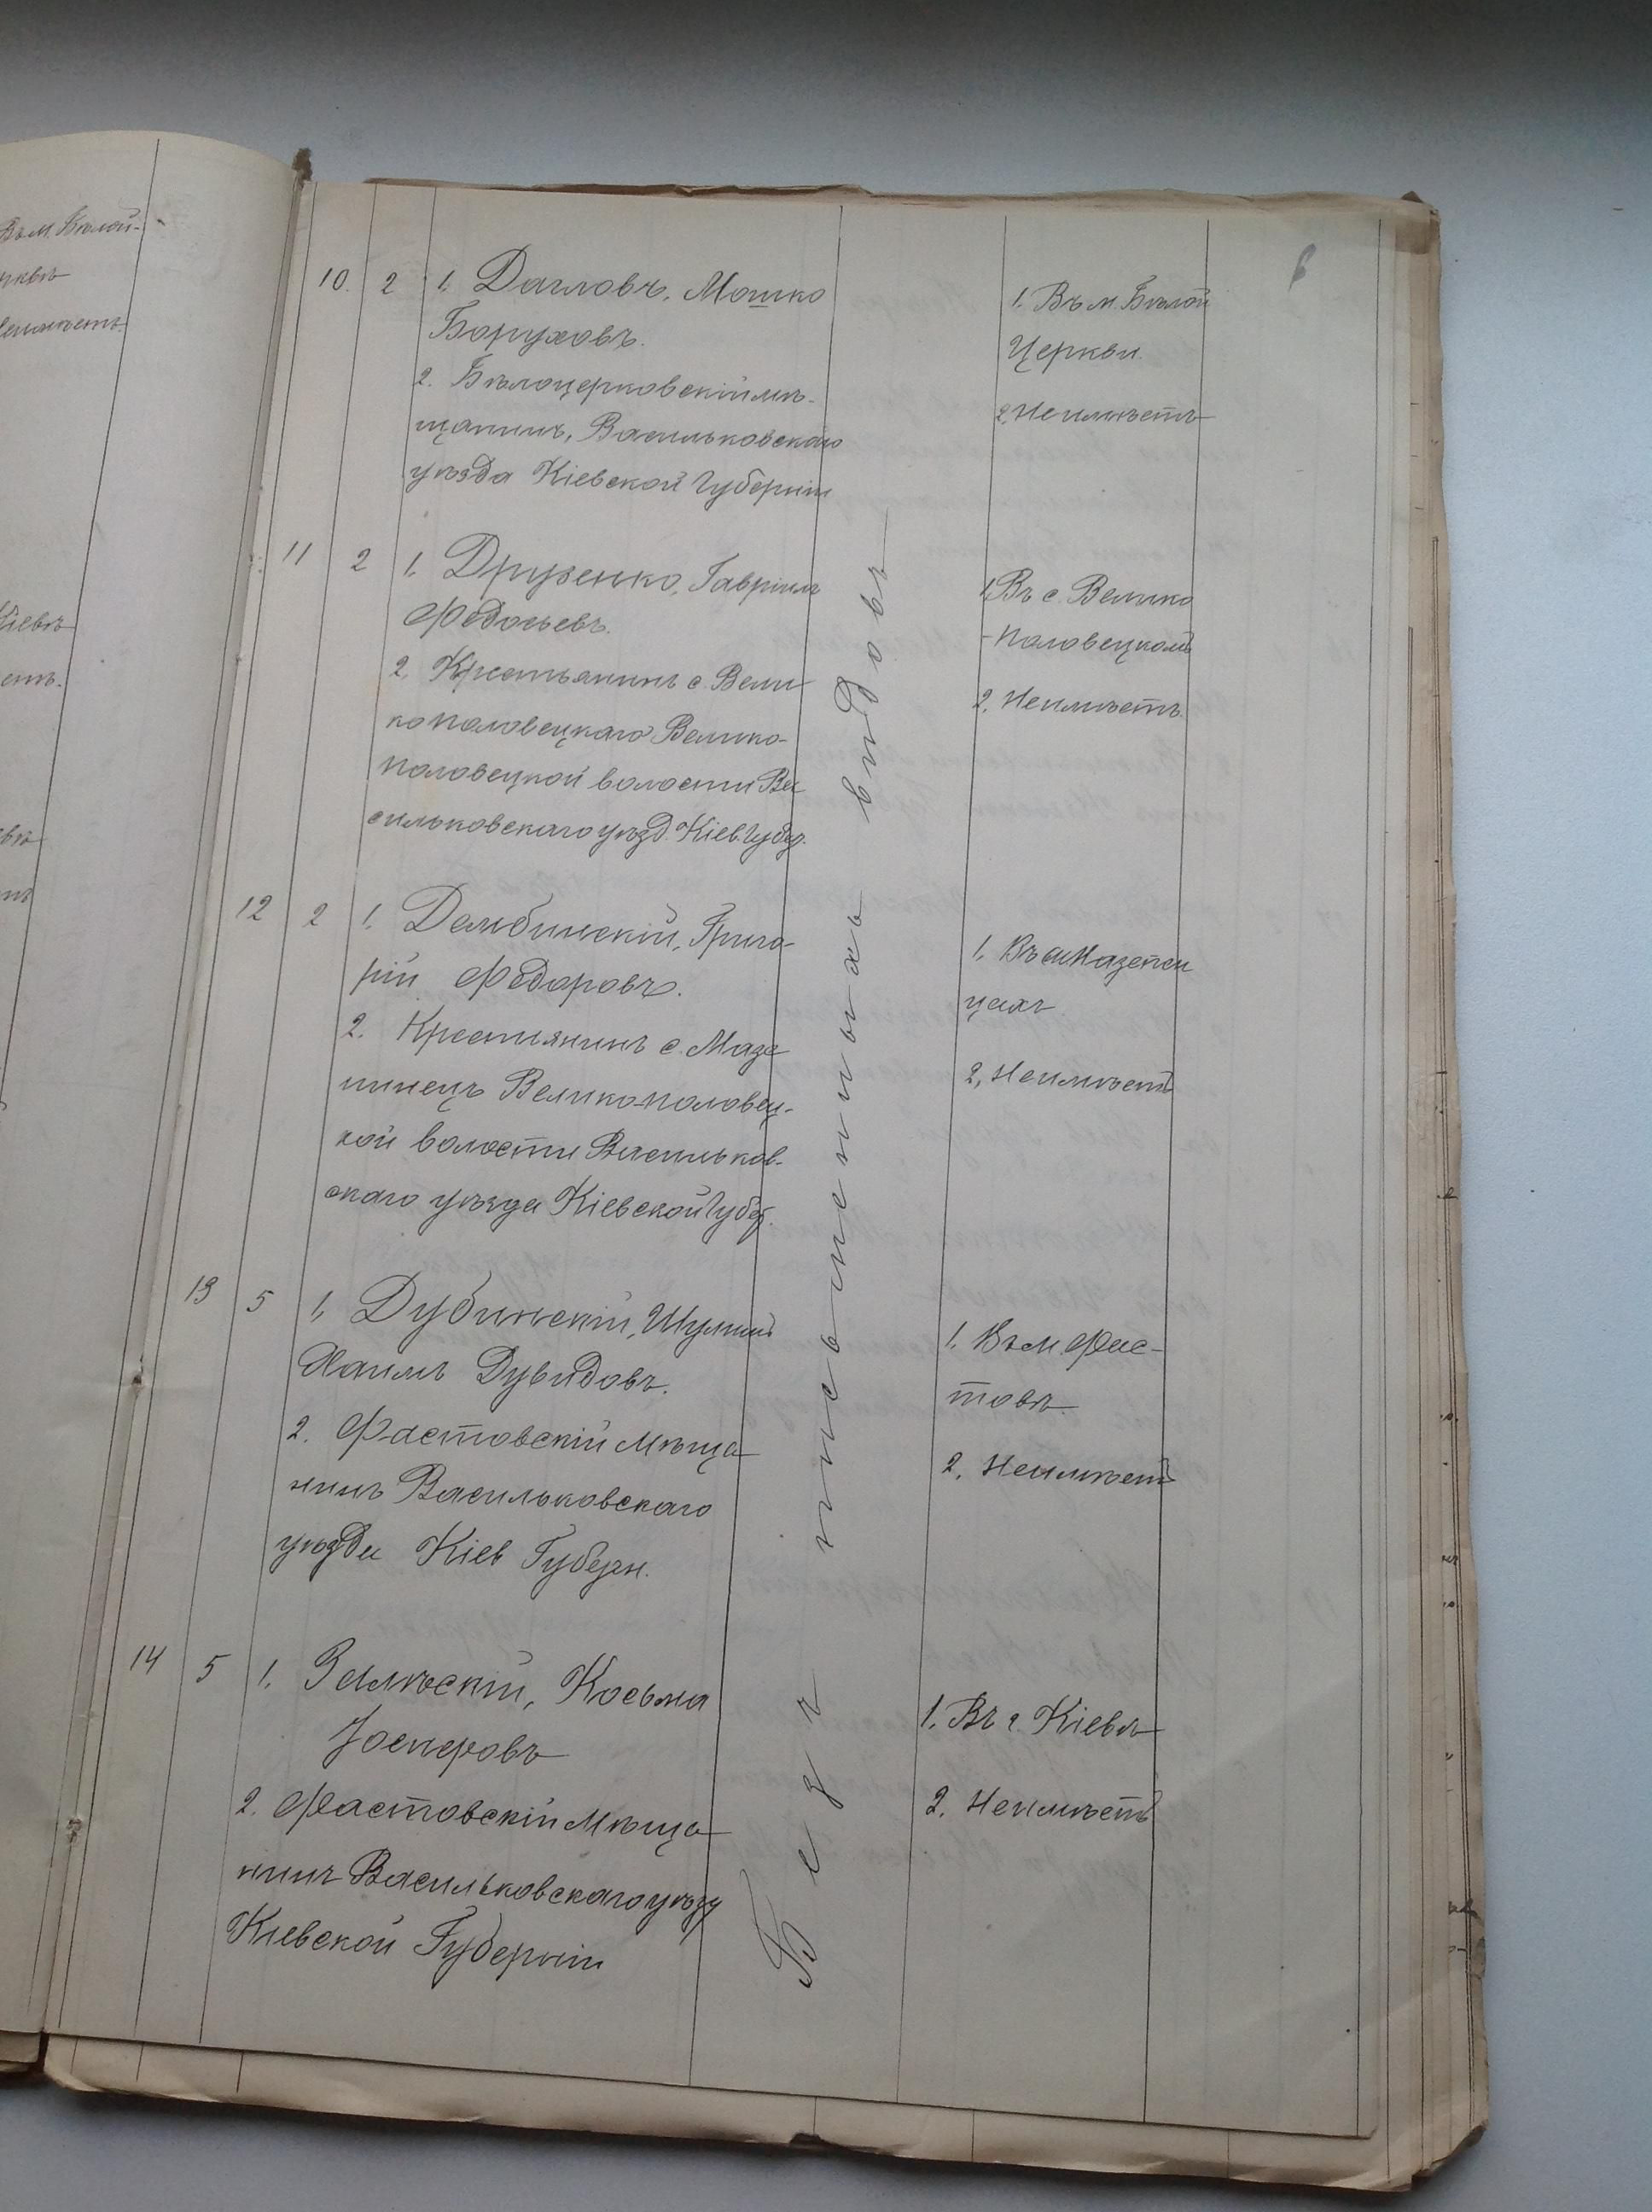 Въ м. Бѣлой-
10. 2 1. Дагловъ, Мошко
Боруховъ.
2. Бѣлоцерковскій мѣ-
щанинъ, Васильковскаго
уѣзда Кіевской Губерніи
1. Въ м. Бѣлой
Церкви.
2. Неимѣетъ
6
11 2 1. Друзенко, Гавріилъ
Федосьевъ.
2. Крестьянинъ с. Вели
кополовецкаго Велико-
половецкой волости Ва
сильковскаго уѣзд. Кіев. Губер.
1. Въ с. Велико
-половецкомъ
2. Неимѣетъ.
12 2 1. Дембинскій, Григо-
рій Федоровъ.
2. Крестьянинъ с. Мазе
пинецъ Велико-половец-
кой волости Васильков-
скаго уѣзда Кіевской Губер.
1. Въ с. Мазепин
цахъ
2. Неимѣетъ
13 5 1. Дубинскій,
Хаимъ Дувидовъ.
2. Фастовскій мѣща
нинъ Васильковскаго
уѣзда Кіев Губерн.
1. Въ м. Фас-
товѣ.
2. Неимѣетъ
14 5 1. Замѣскій, Косьма
2. Фастовскій мѣща
нинъ Васильковскаго уѣзд
Кіевской Губерніи
1. Въ г. Кіевѣ
2. Неимѣетъ
Безъ письменныхъ видовъ